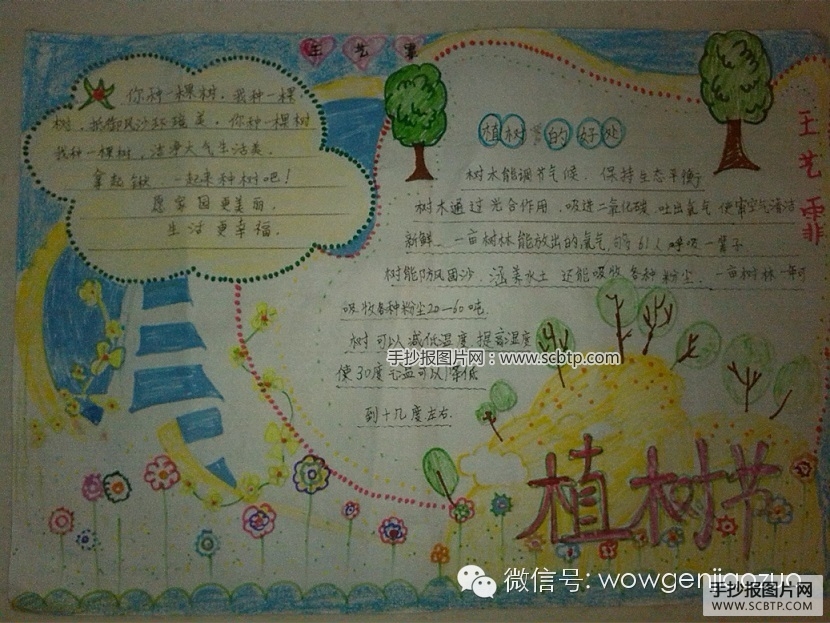 王艺霏
你种一棵树，我种一棵
树，抵御风沙环境美，你种一棵树
我种一棵树，洁净大气生活美.
拿起锹，一起来种树吧！
愿家园更美丽，
生活更幸福.
植树的好处
树木能调节气候、保持生态平衡
树木通过光合作用，吸进二氧化碳，吐出氧气使空气清洁
新鲜、一亩树林能放出的氧气，够61人呼吸一辈子
树能防风固沙，涵养水土还能吸收各种粉尘、一亩树林一年可
吸收各种粉尘20—60吨.
树可以减低温度提高湿度
使30度气温可以降低
到十几度左右.
王艺霏
手抄报图片网：www.scbtp.com
植树节
微信号: wowgenjiaozuo
手抄报图片网
WWW.SCBTP.COM